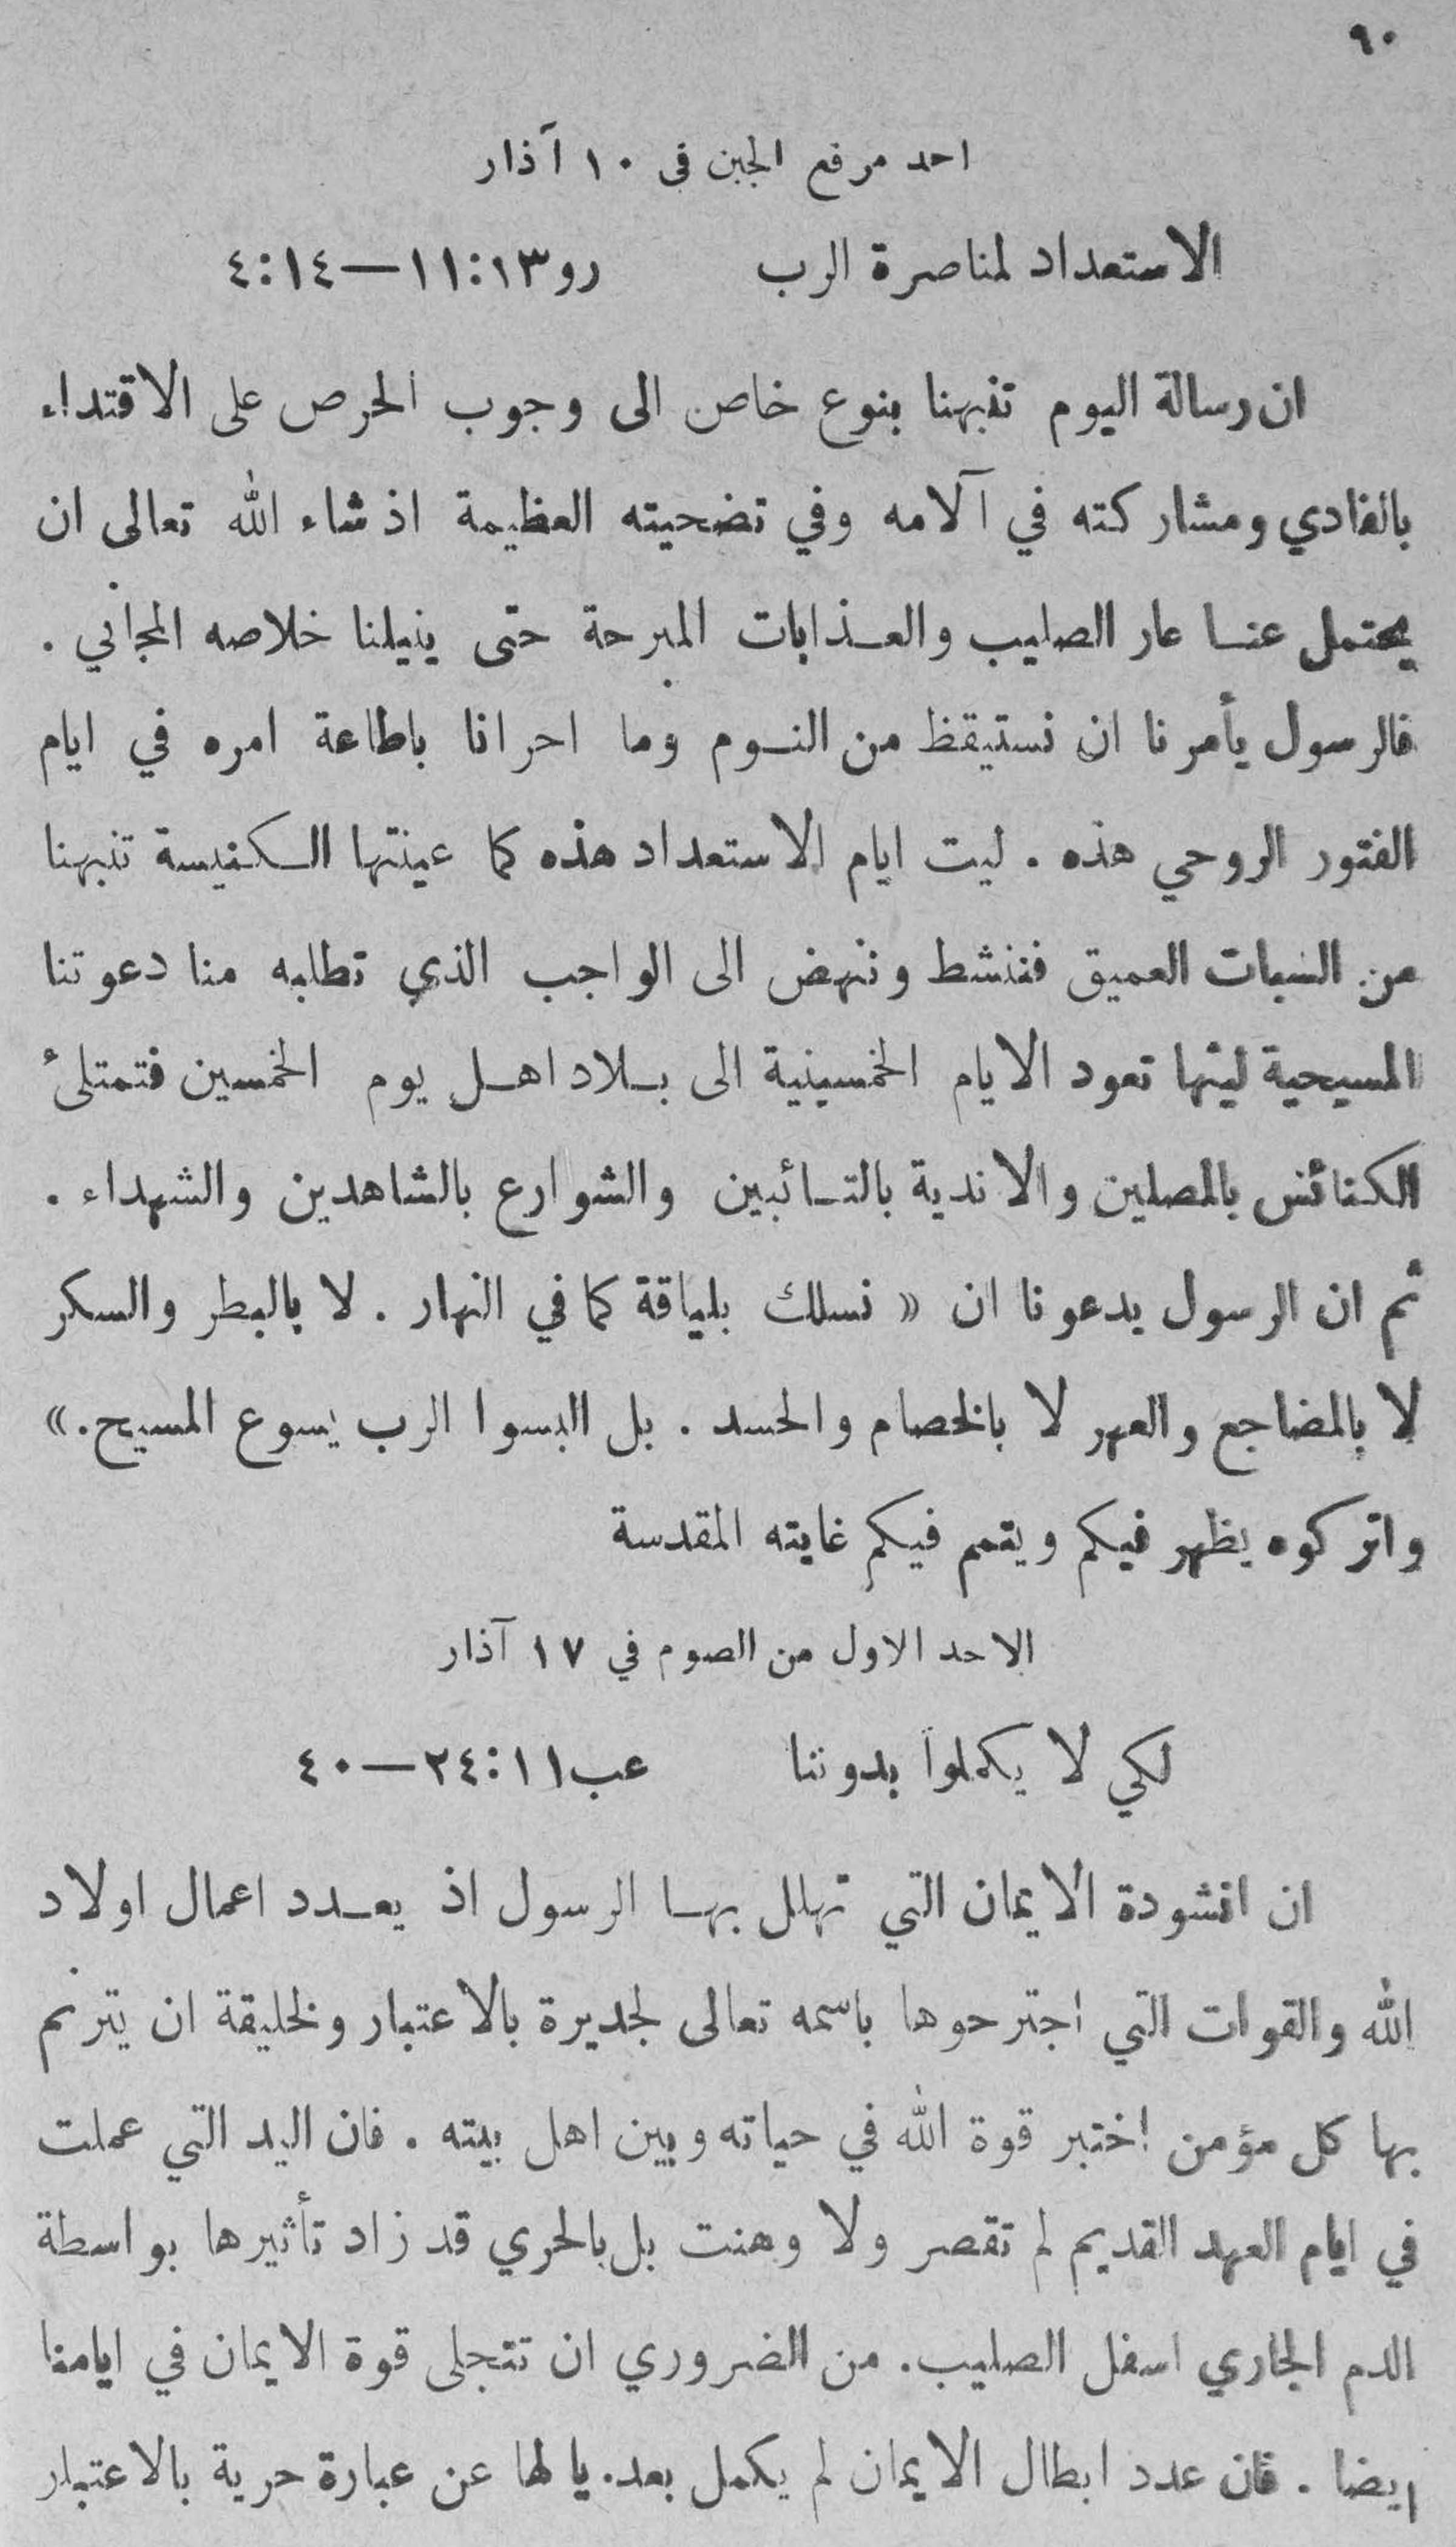 ٩٠
احد مرفع الجبن في ١٠ آذار
الاستعداد لمناصرة الرب رو١١:١٣—٤:١٤
ان رسالة اليوم تنبهنا بنوع خاص الى وجوب الحرص على الاقتداء
بالفادي ومشاركته في آلامه وفي تضحيته العظيمة اذ شاء الله تعالى ان
يحتمل عنا عار الصليب والعذابات المبرحة حتى ينيلنا خلاصه المجاني .
فالرسول يأمرنا ان نستيقظ من النوم وما احرانا باطاعة امره في ايام
الفتور الروحي هذه . ليت ايام الاستعداد هذه كما عينتها الكنيسة تنبهنا
من السبات العميق فننشط وننهض الى الواجب الذي تطلبه منا دعوتنا
المسيحية ليتها تعود الايام الخمسينية الى بلاد اهل يوم الخمسين فتمتلئ
الكنائس بالمصلين والاندية بالتائبين والشوارع بالشاهدين والشهداء .
ثم ان الرسول يدعونا ان « نسلك بلياقة كما في النهار . لا بالبطر والسكر
لا بالمضاجع والعهر لا بالخصام والحسد . بل البسوا الرب يسوع المسيح.»
واتركوه يظهر فيكم ويتمم فيكم غايته المقدسة
الاحد الاول من الصوم في ١٧ آذار
لكي لا يكملوا بدوننا عب٢٤:١١—٤٠
ان انشودة الايمان التي تهلل بها الرسول اذ يعدد اعمال اولاد
الله والقوات التي اجترحوها باسمه تعالى لجديرة بالاعتبار ولخليقة ان يترنم
بها كل مؤمن اختبر قوة الله في حياته وبين اهل بيته . فان اليد التي عملت
في ايام العهد القديم لم تقصر ولا وهنت بل بالحري قد زاد تأثيرها بواسطة
الدم الجاري اسفل الصليب. من الضروري ان تتجلى قوة الايمان في ايامنا
ايضا . فان عدد ابطال الايمان لم يكمل بعد. يا لها عن عبارة حرية بالاعتبار